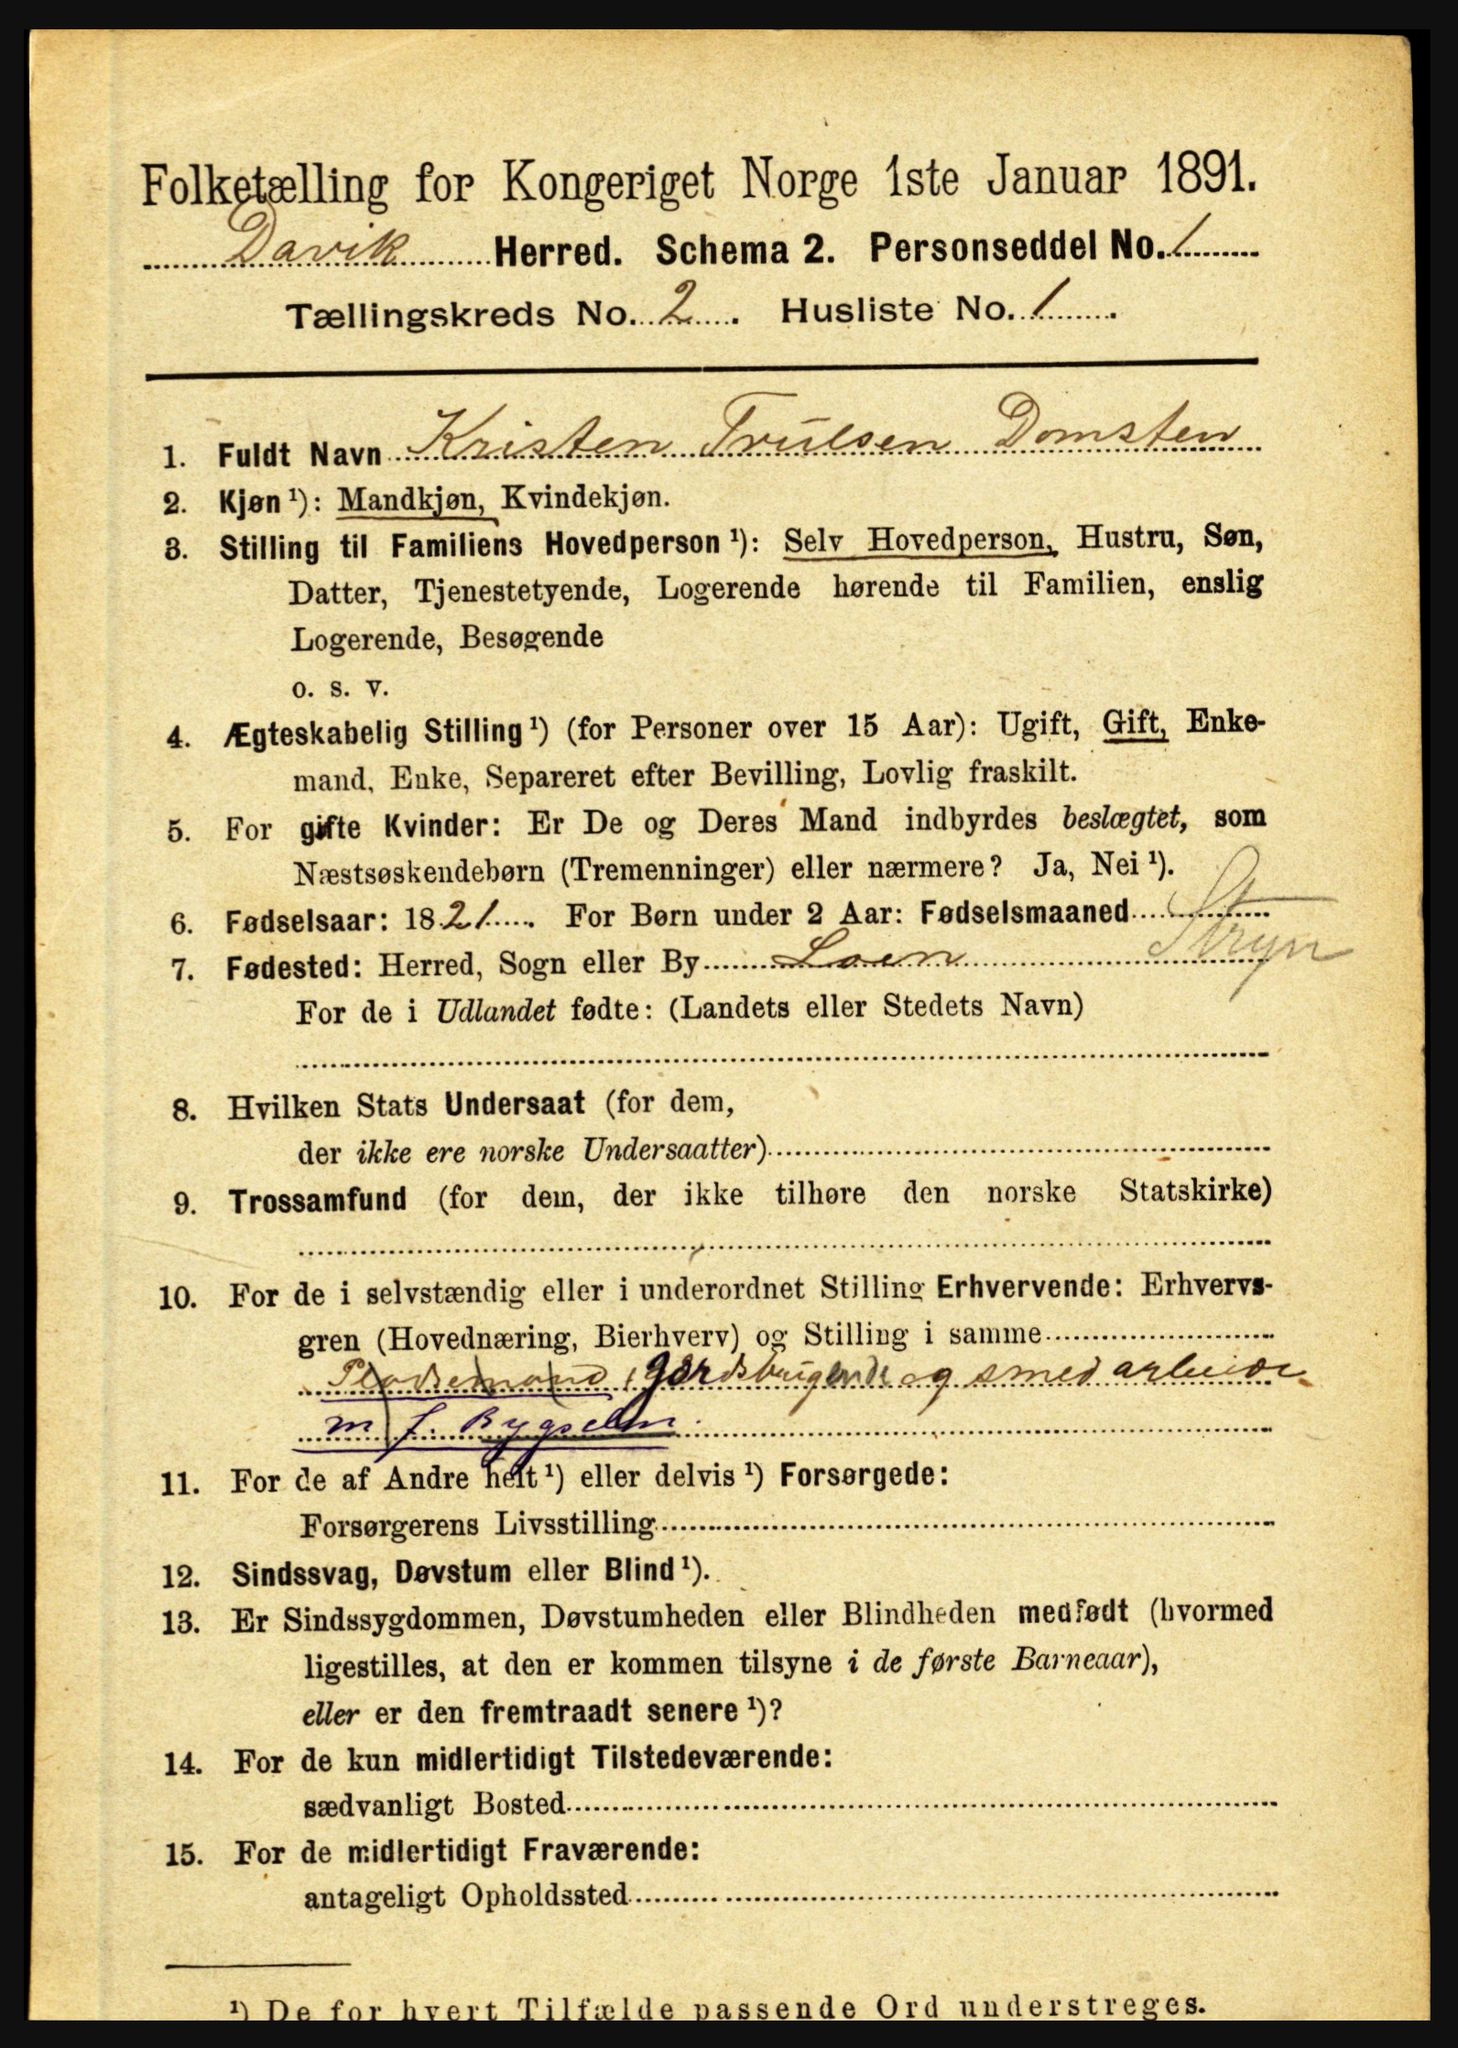 Folketælling for Kongeriget Norge 1ste Januar 1891.
Davik Herred. Schema 2. Personseddel No. 1
Tællingskreds No. 2. Husliste No. 1.
1. Fuldt Navn Kristen Trulsen Domsten
2. Kjøn ¹): Mandkjøn, Kvindekjøn.
3. Stilling til Familiens Hovedperson ¹): Selv Hovedperson, Hustru, Søn,
Datter, Tjenestetyende, Logerende hørende til Familien, enslig
Logerende, Besøgende
o. s. v.
4. Ægteskabelig Stilling ¹) (for Personer over 15 Aar): Ugift, Gift, Enke-
mand, Enke, Separeret efter Bevilling, Lovlig fraskilt.
5. For gifte Kvinder: Er De og Deres Mand indbyrdes beslægtet, som
Næstsøskendebørn (Tremenninger) eller nærmere? Ja, Nei ¹).
6. Fødselsaar: 1821. For Børn under 2 Aar: Fødselsmaaned
7. Fødested: Herred, Sogn eller By Loen Stryn
For de i Udlandet fødte: (Landets eller Stedets Navn)
8. Hvilken Stats Undersaat (for dem,
der ikke ere norske Undersaatter)
9. Trossamfund (for dem, der ikke tilhøre den norske Statskirke)
10. For de i selvstændig eller i underordnet Stilling Erhvervende: Erhvervs-
gren (Hovednæring, Bierhverv) og Stilling i samme
Pladsemand, og smedarbeide
m f. Bygselm.
11. For de af Andre helt ¹) eller delvis ¹) Forsørgede:
Forsørgerens Livsstilling
12. Sindssvag, Døvstum eller Blind ¹).
13. Er Sindssygdommen, Døvstumheden eller Blindheden medfødt (hvormed
ligestilles, at den er kommen tilsyne i de første Barneaar),
eller er den fremtraadt senere ¹)?
14. For de kun midlertidigt Tilstedeværende:
sædvanligt Bosted
15. For de midlertidigt Fraværende:
antageligt Opholdssted
¹) De for hvert Tilfælde passende Ord understreges.